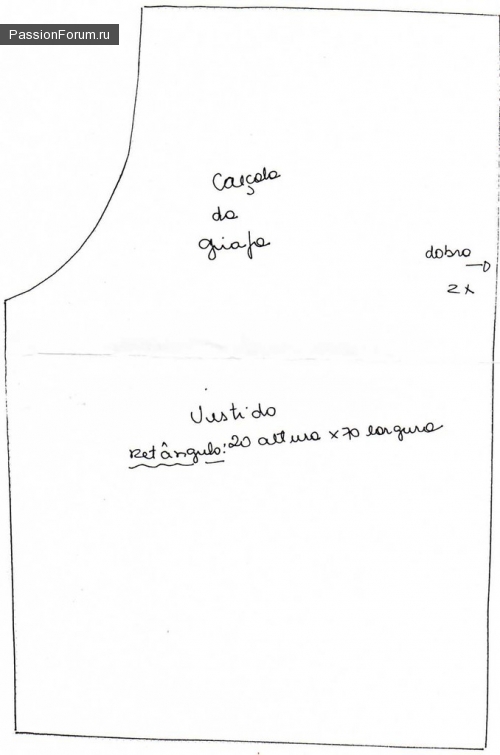 PassionForum.ru
Calçola
da
girafa
dobro
2x
Vestido
Retângulo: 20 altura x 70 largura